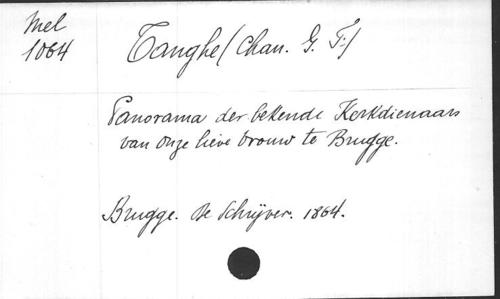 Mel
1064
Tanghe (Chan. G. F.)
Panorama der bekende Kerkdienaars
van onze lieve vrouw te Brugge.
Brugge. De Schrijver. 1864.